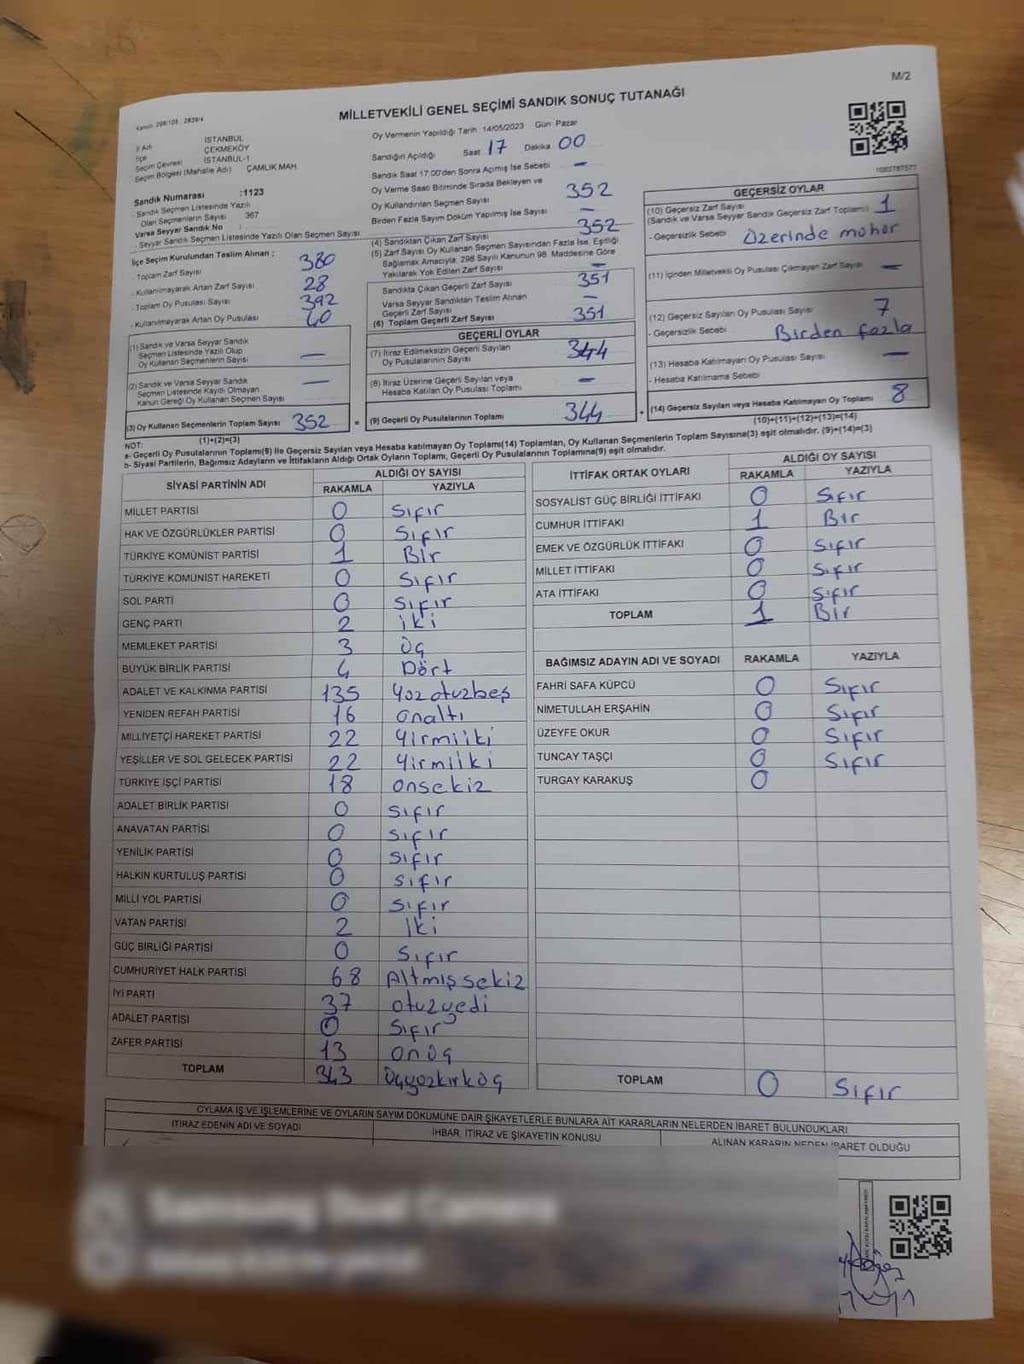 M/2
MİLLETVEKİLİ GENEL SEÇİMİ SANDIK SONUÇ TUTANAĞI
Kanun: 298/105 : 2839/4
İl Adı İSTANBUL
İlçe ÇEKMEKÖY
Seçim Çevresi İSTANBUL-1
Seçim Bölgesi (Mahalle Adı) ÇAMLIK MAH
Sandık Numarası :1123
Sandık Seçmen Listesinde Yazılı
Olan Seçmenlerin Sayısı 367
Varsa Seyyar Sandık No :
- Seyyar Sandık Seçmen Listesinde Yazılı Olan Seçmen Sayısı
Oy Vermenin Yapıldığı Tarih :14/05/2023 Gün: Pazar
Sandığın Açıldığı Saat 17 Dakika 00
Sandık Saat 17:00'den Sonra Açmış İse Sebebi —
Oy Verme Saati Bitiminde Sırada Bekleyen ve
Oy Kullandırılan Seçmen Sayısı 352
Birden Fazla Sayım Döküm Yapılmış İse Sayısı —
İlçe Seçim Kurulundan Teslim Alınan ;
- Toplam Zarf Sayısı 380
- Kullanılmayarak Artan Zarf Sayısı 28
- Toplam Oy Pusulası Sayısı 392
- Kullanılmayarak Artan Oy Pusulası 40
(1) Sandık ve Varsa Seyyar Sandık
Seçmen Listesinde Yazılı Olup
Oy Kullanan Seçmenlerin Sayısı —
(2) Sandık ve Varsa Seyyar Sandık
Seçmen Listesinde Kaydı Olmayan
Kanun Gereği Oy Kullanan Seçmen Sayısı —
(3) Oy Kullanan Seçmenlerin Toplam Sayısı 352
(1)+(2)=(3)
(4) Sandıktan Çıkan Zarf Sayısı 352
(5) Zarf Sayısı Oy Kullanan Seçmen Sayısından Fazla İse, Eşitliği
Sağlamak Amacıyla, 298 Sayılı Kanunun 98. Maddesine Göre
Yakılarak Yok Edilen Zarf Sayısı —
Sandıkta Çıkan Geçerli Zarf Sayısı 351
Varsa Seyyar Sandıktan Teslim Alınan
Geçerli Zarf Sayısı —
(6) Toplam Geçerli Zarf Sayısı 351
GEÇERLİ OYLAR
(7) İtiraz Edilmeksizin Geçerli Sayılan
Oy Pusulalarının Sayısı 344
(8) İtiraz Üzerine Geçerli Sayılan veya
Hesaba Katılan Oy Pusulası Toplamı —
= (9) Geçerli Oy Pusulalarının Toplamı 344
GEÇERSİZ OYLAR
(10) Geçersiz Zarf Sayısı
(Sandık ve Varsa Seyyar Sandık Geçersiz Zarf Toplamı) 1
- Geçersizlik Sebebi Üzerinde mühür
(11) İçinden Milletvekili Oy Pusulası Çıkmayan Zarf Sayısı —
(12) Geçersiz Sayılan Oy Pusulası Sayısı 7
- Geçersizlik Sebebi Birden fazla
(13) Hesaba Katılmayan Oy Pusulası Sayısı —
- Hesaba Katılmama Sebebi
+ (14) Geçersiz Sayılan veya Hesaba Katılmayan Oy Toplamı 8
(10)+(11)+(12)+(13)=(14)
NOT:
a- Geçerli Oy Pusulalarının Toplamı(9) ile Geçersiz Sayılan veya Hesaba katılmayan Oy Toplamı(14) Toplamları, Oy Kullanan Seçmenlerin Toplam Sayısına(3) eşit olmalıdır. (9)+(14)=(3)
b- Siyasi Partilerin, Bağımsız Adayların ve İttifakların Aldığı Ortak Oyların Toplamı, Geçerli Oy Pusulalarının Toplamına(9) eşit olmalıdır.
SİYASİ PARTİNİN ADI ALDIĞI OY SAYISI
RAKAMLA YAZIYLA
MİLLET PARTİSİ 0 Sıfır
HAK VE ÖZGÜRLÜKLER PARTİSİ 0 Sıfır
TÜRKİYE KOMÜNİST PARTİSİ 1 Bir
TÜRKİYE KOMÜNİST HAREKETİ 0 Sıfır
SOL PARTİ 0 Sıfır
GENÇ PARTİ 2 iki
MEMLEKET PARTİSİ 3 Üç
BÜYÜK BİRLİK PARTİSİ 4 Dört
ADALET VE KALKINMA PARTİSİ 135 Yüzotuzbeş
YENİDEN REFAH PARTİSİ 16 onaltı
MİLLİYETÇİ HAREKET PARTİSİ 22 Yirmiiki
YEŞİLLER VE SOL GELECEK PARTİSİ 22 Yirmiiki
TÜRKİYE İŞÇİ PARTİSİ 18 onsekiz
ADALET BİRLİK PARTİSİ 0 sıfır
ANAVATAN PARTİSİ 0 sıfır
YENİLİK PARTİSİ 0 sıfır
HALKIN KURTULUŞ PARTİSİ 0 sıfır
MİLLİ YOL PARTİSİ 0 sıfır
VATAN PARTİSİ 2 İki
GÜÇ BİRLİĞİ PARTİSİ 0 Sıfır
CUMHURİYET HALK PARTİSİ 68 Altmışsekiz
İYİ PARTİ 37 otuzyedi
ADALET PARTİSİ 0 Sıfır
ZAFER PARTİSİ 13 onüç
TOPLAM 343 Üçyüzkırküç
İTTİFAK ORTAK OYLARI ALDIĞI OY SAYISI
RAKAMLA YAZIYLA
SOSYALİST GÜÇ BİRLİĞİ İTTİFAKI 0 Sıfır
CUMHUR İTTİFAKI 1 Bir
EMEK VE ÖZGÜRLÜK İTTİFAKI 0 Sıfır
MİLLET İTTİFAKI 0 Sıfır
ATA İTTİFAKI 0 Sıfır
TOPLAM 1 Bir
BAĞIMSIZ ADAYIN ADI VE SOYADI RAKAMLA YAZIYLA
FAHRİ SAFA KÜPCÜ 0 Sıfır
NİMETULLAH ERŞAHİN 0 Sıfır
ÜZEYFE OKUR 0 Sıfır
TUNCAY TAŞÇI 0 Sıfır
TURGAY KARAKUŞ 0
TOPLAM 0 Sıfır
OYLAMA İŞ VE İŞLEMLERİNE VE OYLARIN SAYIM DÖKÜMÜNE DAİR ŞİKAYETLERLE BUNLARA AİT KARARLARIN NELERDEN İBARET BULUNDUKLARI
İTİRAZ EDENİN ADI VE SOYADI İHBAR, İTİRAZ VE ŞİKAYETİN KONUSU ALINAN KARARIN NEDEN İBARET OLDUĞU